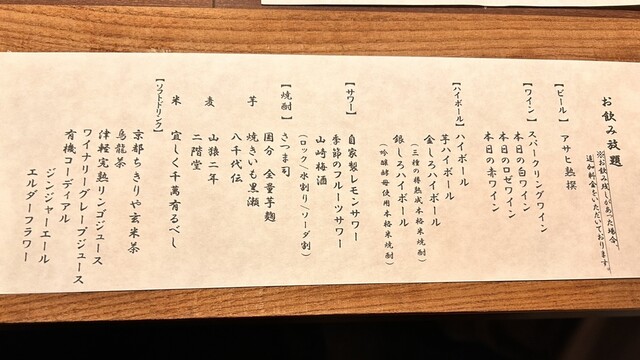 お飲み放題
※お飲み残しがあった場合、
追加料金をいただいております。
【ビール】
アサヒ熟撰
【ワイン】
スパークリングワイン
本日の白ワイン
本日のロゼワイン
本日の赤ワイン
【ハイボール】
ハイボール
芋ハイボール
金しろハイボール
（三種の樽熟成本格米焼酎）
銀しろハイボール
（吟醸酵母使用本格米焼酎）
【サワー】
自家製レモンサワー
季節のフルーツサワー
山崎梅酒
（ロック/水割り/ソーダ割）
【焼酎】
さつま司
芋
国分 全量芋麹
焼きいも黒瀬
八千代伝
麦
山猿二年
二階堂
米
宜しく千萬有るべし
【ソフトドリンク】
京都ちきりや玄米茶
烏龍茶
津軽完熟リンゴジュース
ワイナリーグレープジュース
有機コーディアル
ジンジャーエール
エルダーフラワー